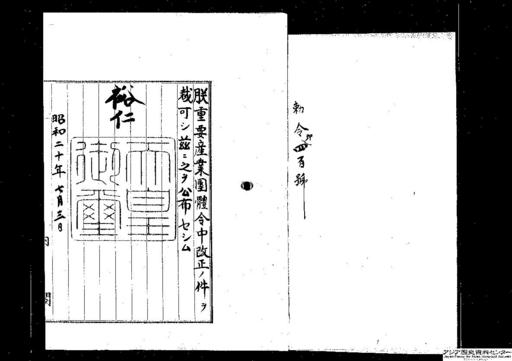 勅令第四百號
朕重要産業團體令中改正ノ件ヲ
裁可シ茲ニ之ヲ公布セシム
裕仁
天皇御璽
昭和二十年七月三日
内閣
アジア歴史資料センター